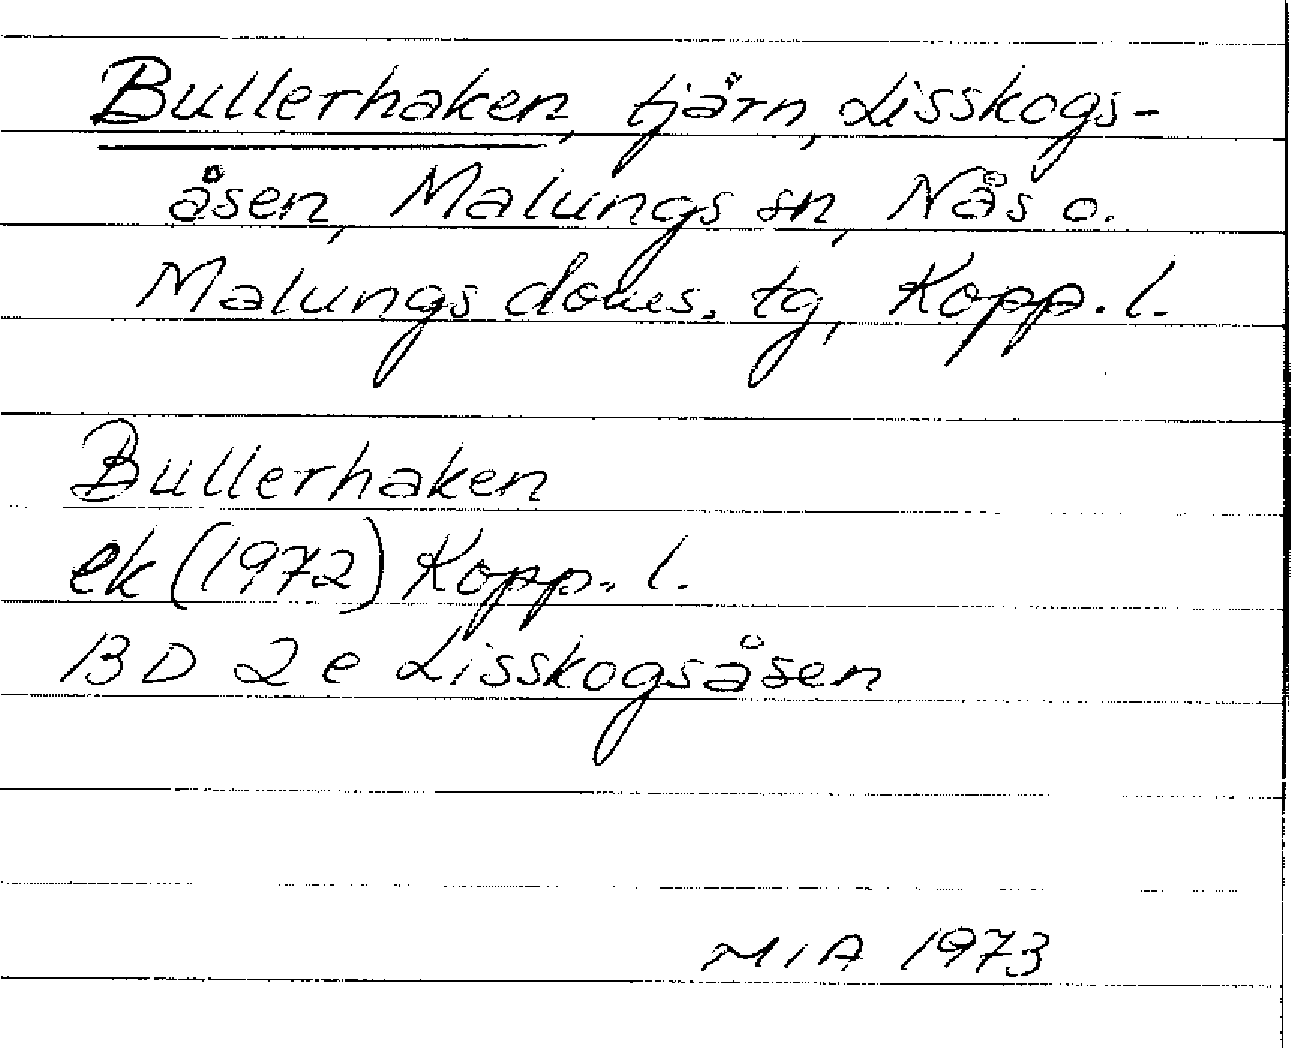 Bullerhaken, tjärn, Lisskogs-
åsen, Malungs sn, Nås o.
Malungs doms. tg, Kopp. l.
Bullerhaken
ek (1972) Kopp. l.
13 D 2 e Lisskogsåsen
MIA 1973